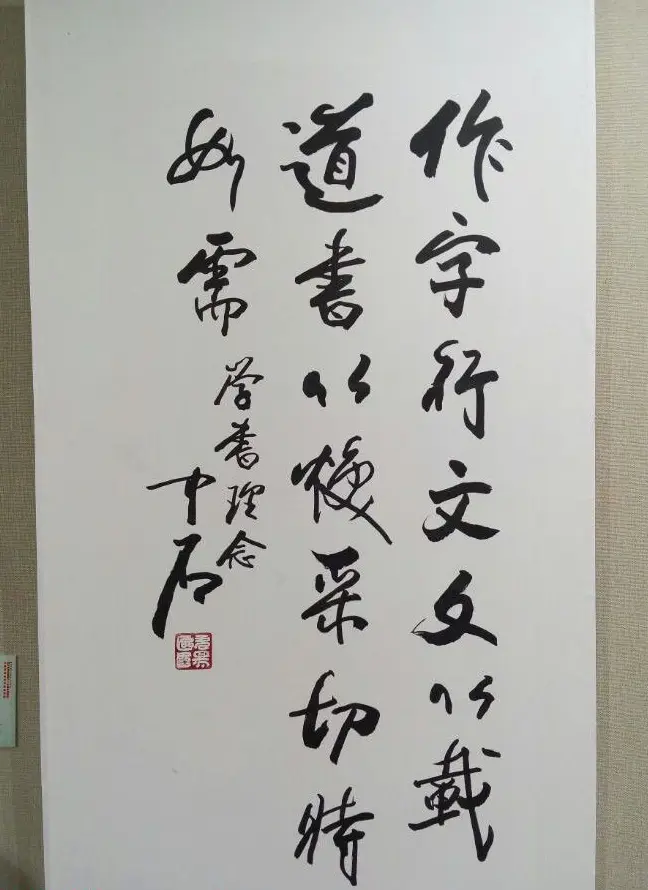 作字行文文以載
道書以焕采切時
如需
学書理念
中石